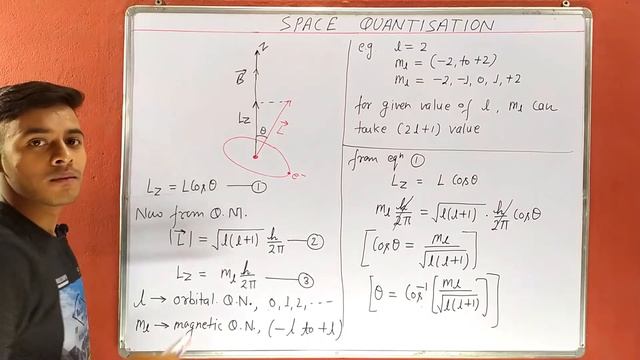 SPACE QUANTISATION
Z
B⃗
Lz
θ
L⃗
e-
Lz = L Cosθ — ①
Now from Q.M.
|L⃗| = √l(l+1) h/2π — ②
Lz = ml h/2π — ③
l → orbital Q.N., 0, 1, 2, ---
ml → magnetic Q.N., (-l to +l)
eg l = 2
ml = (-2, to +2)
ml = -2, -1, 0, 1, +2
for given value of l, ml can
take (2l+1) value
from eqn ①
Lz = L cosθ
ml h/2π = √l(l+1) · h/2π cosθ
[Cosθ = ml/√l(l+1)]
[θ = Cos-1 [ml/√l(l+1)]]